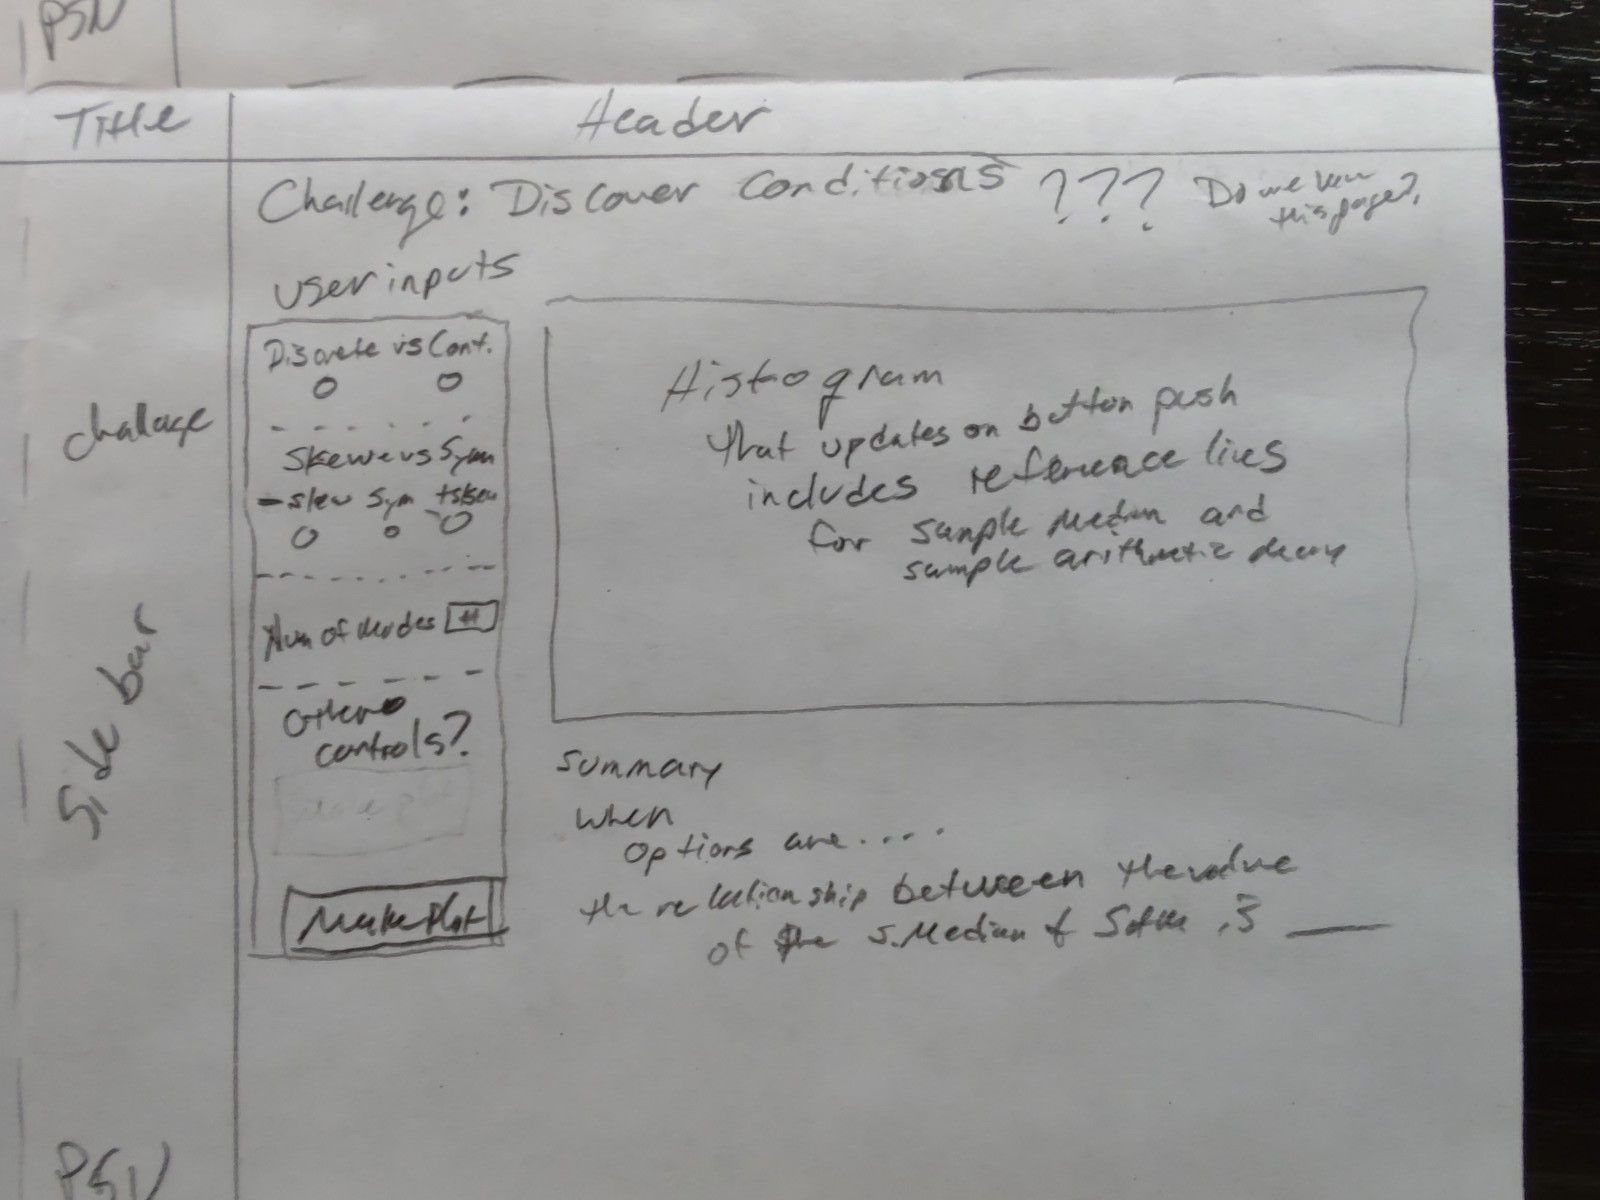 PSU
Title
Header
Challenge: Discover Conditions ??? Do we keep
this page?
User inputs
Discrete vs Cont.
Skew vs Sym
-skew Sym +skew
Num of Modes #
Other
controls?
Make Plot
Challenge
Side bar
Histogram
that updates on button push
includes reference lines
for sample median and
sample arithmetic
Summary
when
options are....
the relationship between the value
of the s.Median &
PSU